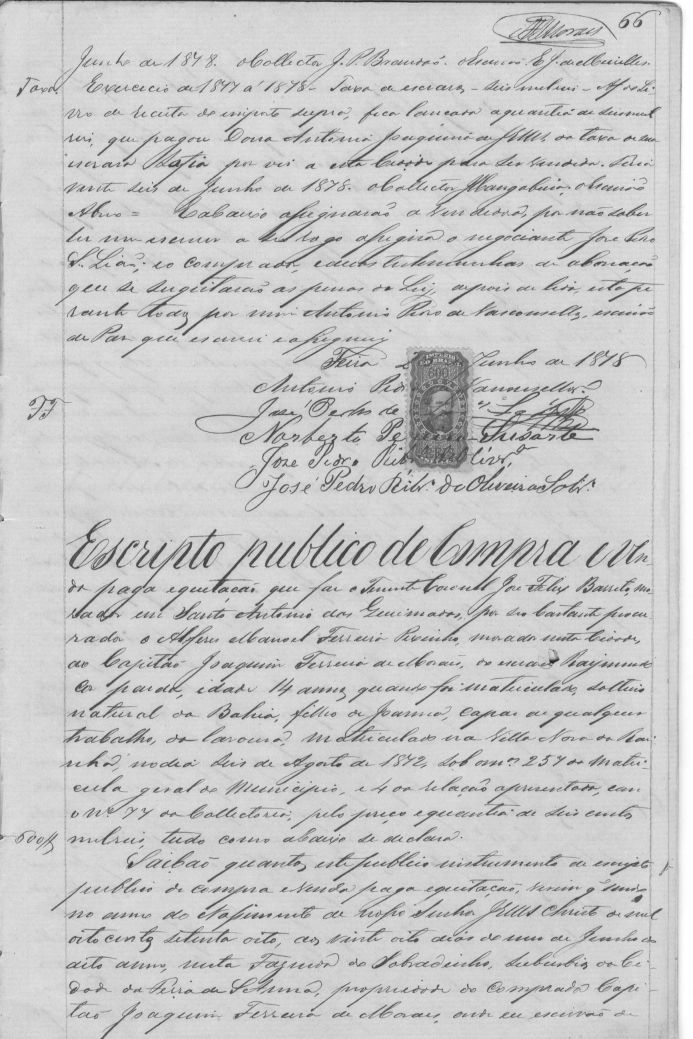 66
Morais
Junho de 1878. O Collector J. P. Brandão. O Escrivão E. J. de Meirelles.
Taxa. Exercicio de 1877 a 1878 - Taxa de escravos - seis mil reis - Af do Li-
vro de receita do imposto supra, fica lançada a quantia de seis mil
reis, que pagou Dona Antonia Joaquina de Jesus da taxa de sua
escrava por vir a esta Cidade para ser vendida. Feira
vinte seis de Junho de 1878. O Collector Mangabeira, o Escrivão
Abreu = E abaixo assignarão a vendedora, por não saber
ler nem escrever a seu rogo assigna o negociante José Pedro
S. Leão, e o comprador, e duas testemunhas de abonação
que se sugeitarão as penas da Lei, depois de lido, este pe-
rante todos por mim Antonio Pedro de Vasconsellos, escrivão
de Paz que escrevi e assignei
Feira Junho de 1878
IMPERIO DO BRAZIL
Antonio Vasconsellos
José Pedro de
Norberto
José Pedro
José Pedro Ribr.º de Oliveira Sobr.º
Escripto publico de Compra e ven-
da paga e quitação que faz o Tenente Coronel José Felix Barreto, mo-
rador em Santo Antonio das Queimadas, por seo bastante procu-
rador o Alferes Manoel Ferreira morador nesta Cidade,
ao Capitão Joaquim Ferreira de Morais, do escravo Raymundo
cor parda, idade 14 annos quando foi matriculado, solteiro
natural da Bahia, filho de Joanna, capaz de qualquer
trabalho, da lavoura, matriculado na Villa Nova da Rai-
nha, no dia seis de Agosto de 1872, sob o nº 257 da Matri-
cula geral do Municipio, e 4 da relação apresentada, com
o Nº 77 da Collectoria, pelo preço e quantia de seis centos
600$ mil reis, tudo como abaixo se declara.
Saibão quantos este publico instrumento de escripto
publico de compra e venda paga e quitação, virem q' sendo
no anno do Nassimento de nosso Senhor Jesus Christo de mil
oito centos setenta oito, aos vinte oito dias do mes de Junho do
dito anno, nesta Fazenda do Sobradinho, suburbios da Ci-
dade da Feira de Santa Anna, propriedade do comprador Capi-
tão Joaquim Ferreira de Morais, onde eu escrivão de